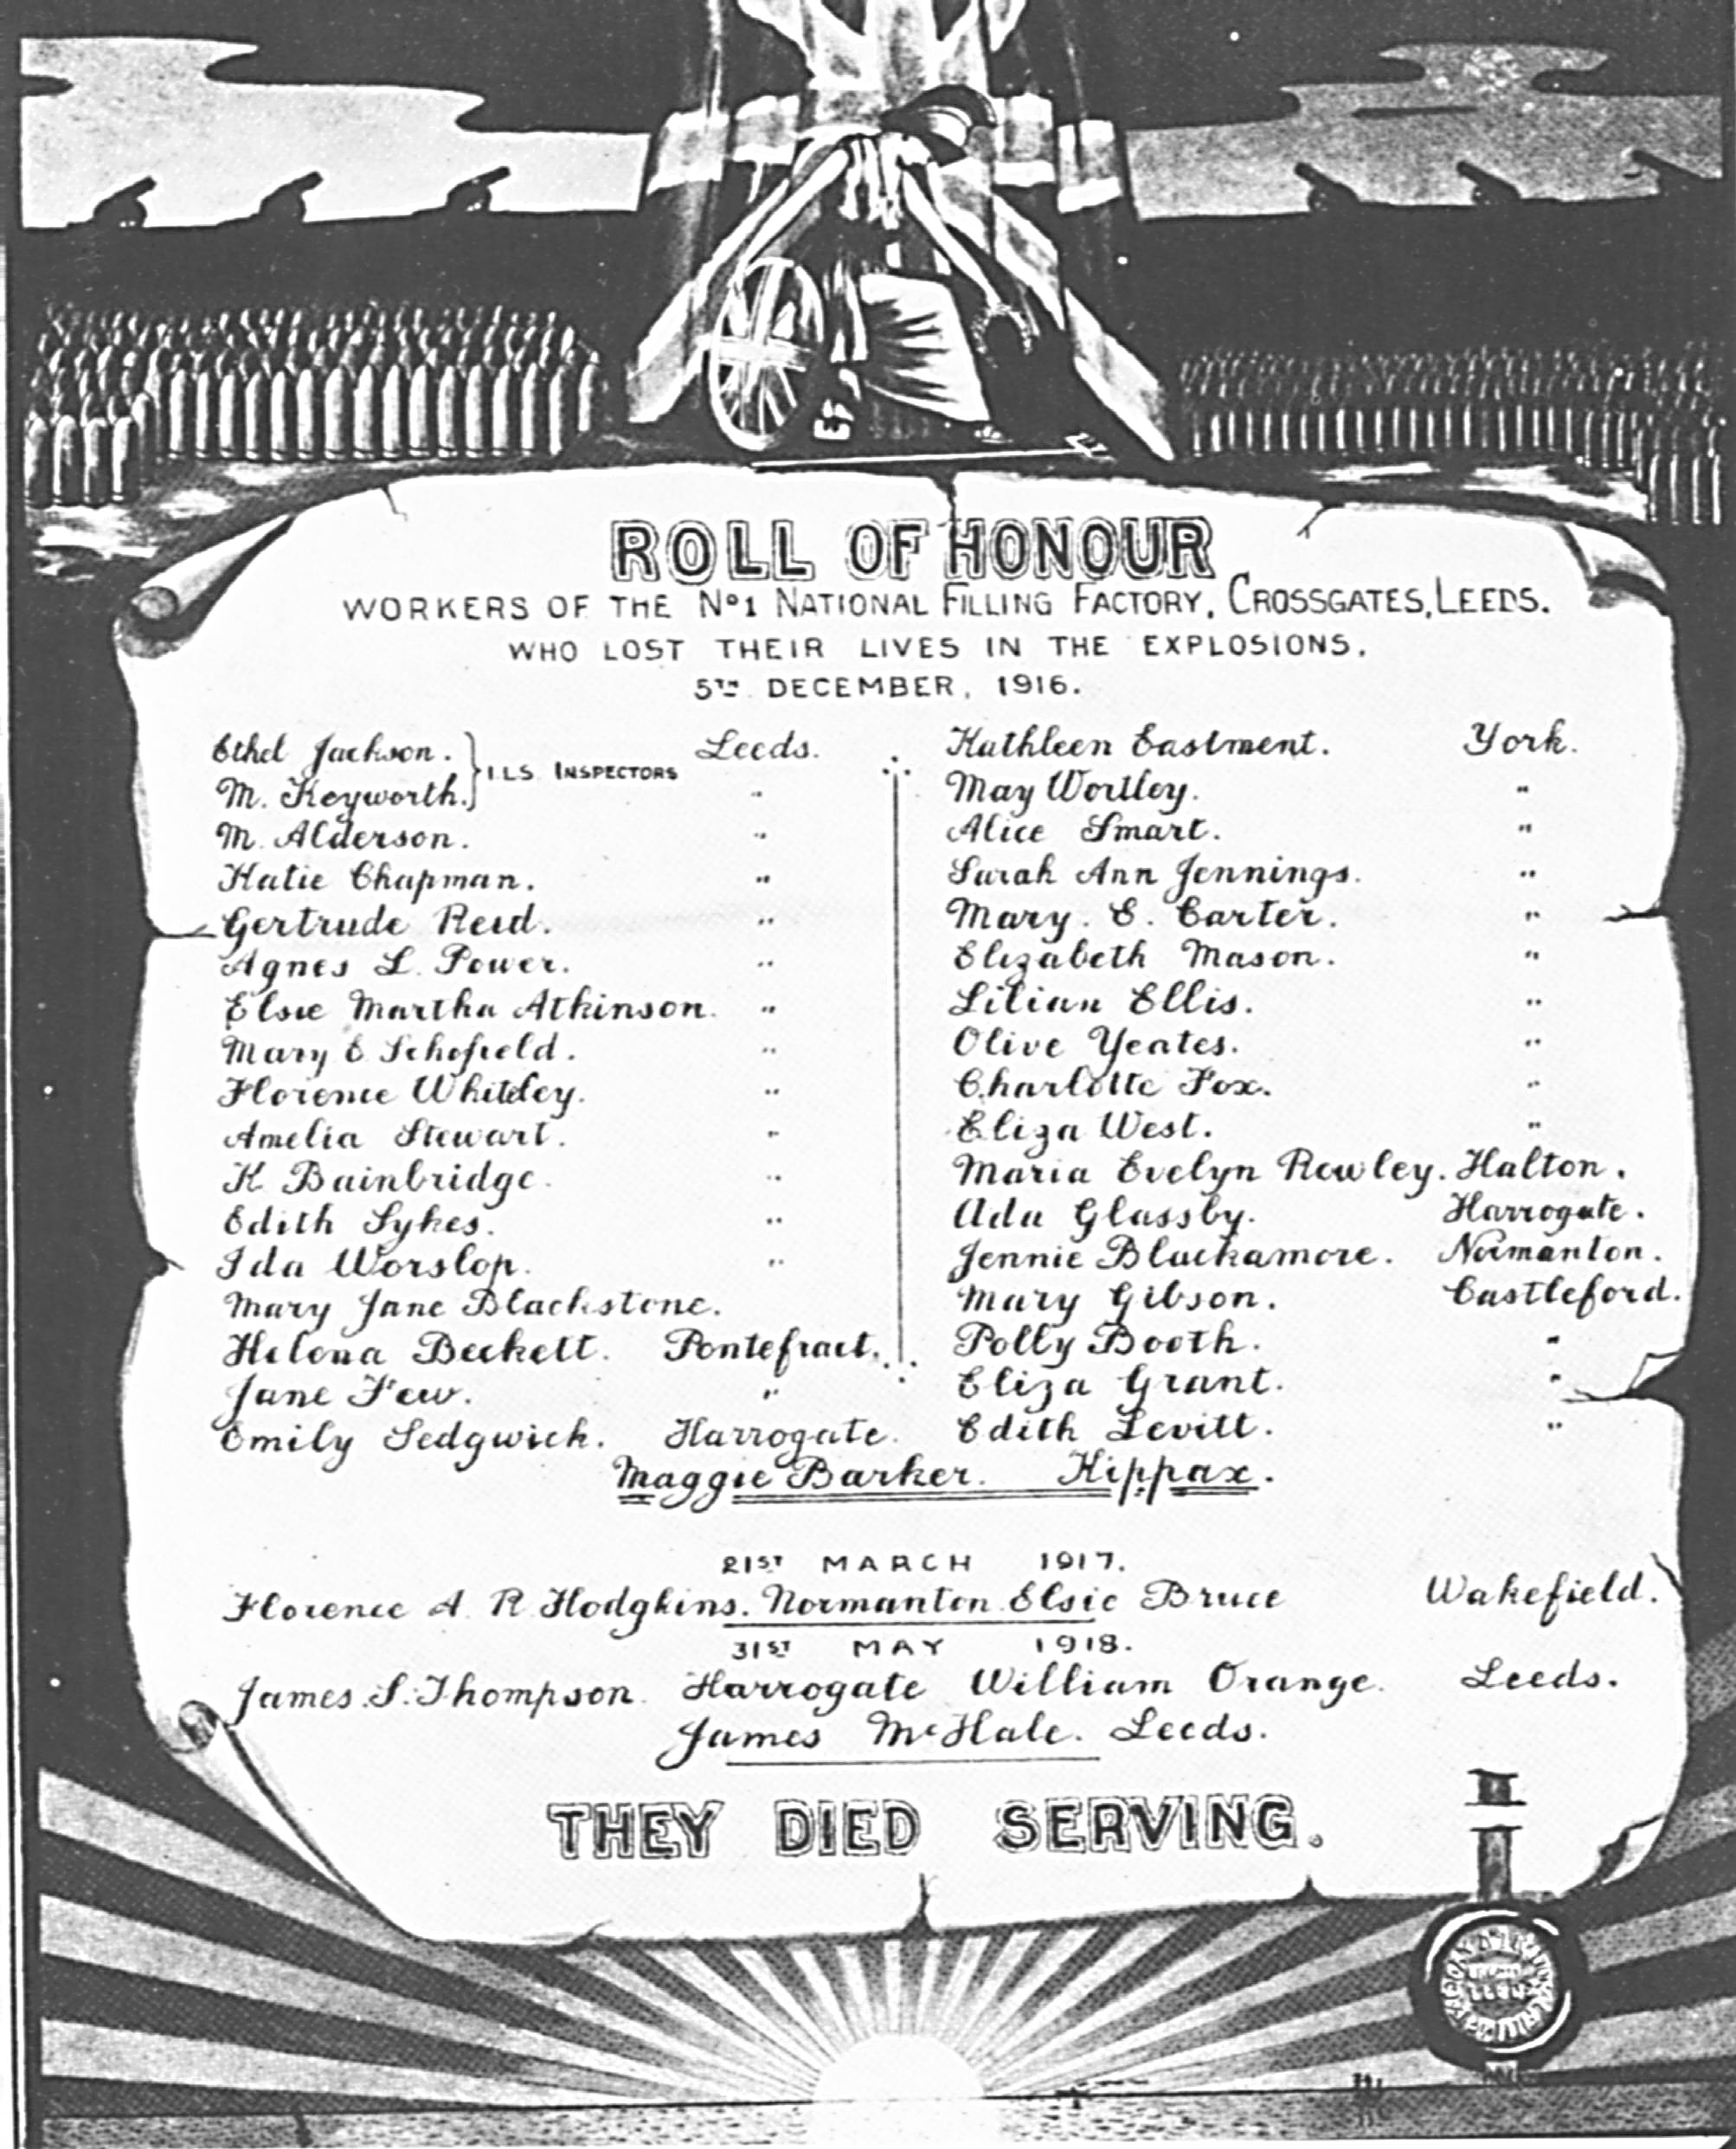 ROLL OF HONOUR
WORKERS OF THE No1 NATIONAL FILLING FACTORY, CROSSGATES, LEEDS.
WHO LOST THEIR LIVES IN THE EXPLOSIONS.
5TH DECEMBER, 1916.
Ethel Jackson. } I.L.S INSPECTORS Leeds.
M. Keyworth. "
M. Alderson. "
Katie Chapman. "
Gertrude Reid. "
Agnes L. Power. "
Elsie Martha Atkinson. "
Mary E Schofield. "
Florence Whiteley. "
Amelia Stewart. "
K Bainbridge. "
Edith Sykes. "
Ida Worslop. "
Mary Jane Blackstone.
Helena Beckett. Pontefract.
Jane Few. "
Emily Sedgwick. Harrogate.
Kathleen Eastment. York.
May Wortley. "
Alice Smart. "
Sarah Ann Jennings. "
Mary. E. Carter. "
Elizabeth Mason. "
Lilian Ellis. "
Olive Yeates. "
Charlotte Fox. "
Eliza West. "
Maria Evelyn Rowley. Halton.
Ada Glassby. Harrogate.
Jennie Blackamore. Normanton.
Mary Gibson. Castleford.
Polly Booth. "
Eliza Grant. "
Edith Levitt. "
Maggie Barker. Kippax.
21ST MARCH 1917.
Florence A R Hodgkins. Normanton Elsie Bruce Wakefield.
31ST MAY 1918.
James. S. Thompson. Harrogate William Orange. Leeds.
James McHale. Leeds.
THEY DIED SERVING.